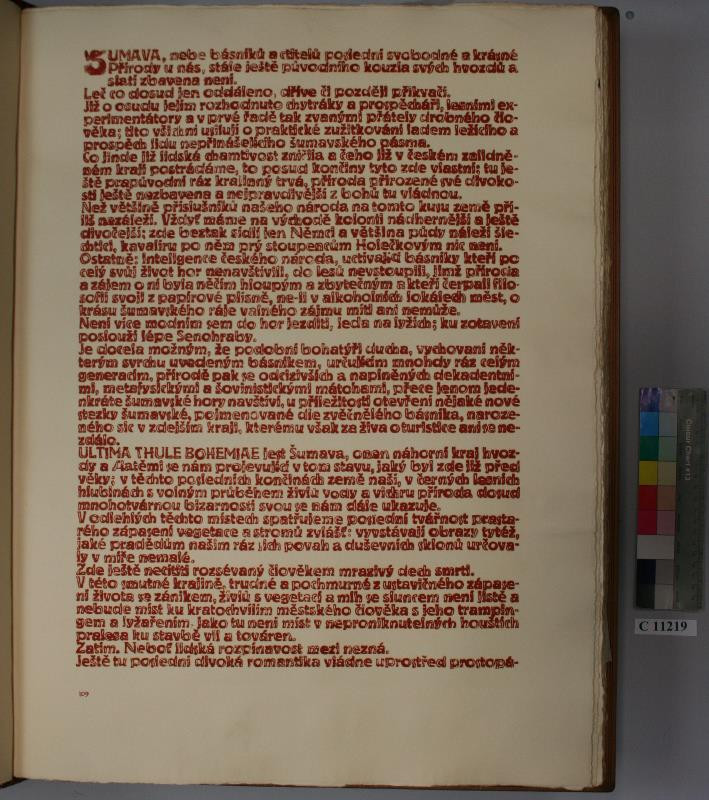 ŠUMAVA, nebe básníků a ctitelů poslední svobodné a krásné
Přírody u nás, stále ještě původního kouzla svých hvozdů a
slatí zbavena není.
Leč co dosud jen oddáleno, dříve či později přikvačí.
Již o osudu jejím rozhodnuto chytráky a prospěcháři, lesními ex-
perimentátory a v prvé řadě tak zvanými přátely drobného člo-
věka; tito všichni usilují o praktické zužitkování ladem ležícího a
prospěch lidu nepřinášejícího šumavského pásma.
Co jinde již lidská chamtivost zničila a čeho již v českém zalidně-
ném kraji postrádáme, to posud končiny tyto zde vlastní; tu je-
ště prapůvodní ráz krajinný trvá, příroda přirozené své divoko-
sti ještě nezbavena a nejpravdivější z bohů tu vládnou.
Než většině příslušníků našeho národa na tomto kusu země pří-
liš nezáleží. Vždyť máme na východě kolonii nádhernější a ještě
divočejší; zde beztak sídlí jen Němci a většina půdy náleží šle-
chtici, kavalíru po něm prý stoupencům Holečkovým nic není.
Ostatně: inteligence českého národa, uctívající básníky kteří po
celý svůj život hor nenavštívili, do lesů nevstoupili, jimž příroda
a zájem o ni byla něčím hloupým a zbytečným a kteří čerpali filo-
sofii svoji z papírové plísně, ne-li v alkoholních lokálech měst, o
krásu šumavského ráje valného zájmu míti ani nemůže.
Není více modním sem do hor jezditi, leda na lyžích; ku zotavení
poslouží lépe Senohraby.
Je docela možným, že podobní bohatýři ducha, vychovaní něk-
terým svrchu uvedeným básníkem, určujícím mnohdy ráz celým
generacím, přírodě pak se odcizivších a naplněných dekadentní-
mi, metafysickými a šovinistickými mátohami, přece jenom jede-
nkráte šumavské hory navštíví, u příležitosti otevření nějaké nové
stezky šumavské, pojmenované dle zvěčnělého básníka, naroze-
ného sic v zdejším kraji, kterému však za živa o turistice ani se ne-
zdálo.
ULTIMA THULE BOHEMIAE jest Šumava, onen náhorní kraj hvoz-
dy a slatěmi se nám projevující v tom stavu, jaký byl zde již před
věky; v těchto posledních končinách země naší, v černých lesních
hlubinách s volným průběhem živlů vody a vichru příroda dosud
mnohotvárnou bizarností svou se nám dále ukazuje.
V odlehlých těchto místech spatřujeme poslední tvářnost prasta-
rého zápasení vegetace a stromů zvlášť: vyvstávají obrazy tytéž,
jaké pradědům našim ráz jich povah a duševních sklonů určova-
ly v míře nemalé.
Zde ještě necítiti rozsévaný člověkem mrazivý dech smrti.
V této smutné krajině, trudné a pochmurné z ustavičného zápase-
ní života se zánikem, živlů s vegetací a mlh se sluncem není jistě a
nebude míst ku kratochvílím městského člověka s jeho trampin-
gem a lyžařením jako tu není míst v neproniknutelných houštích
pralesa ku stavbě vil a továren.
Zatím. Neboť lidská rozpínavost mezí nezná.
Ještě tu poslední divoká romantika vládne uprostřed prostopá-
109
Colour Chart #13
C 11219